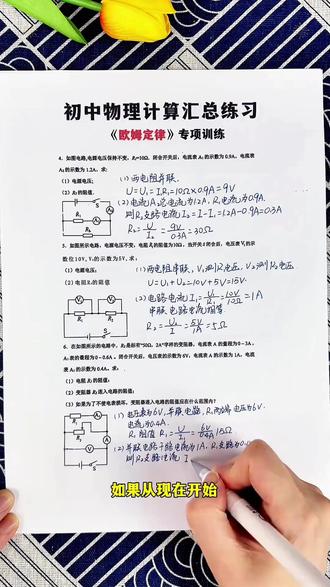 初中物理计算汇总练习
《欧姆定律》专项训练
4. 如图电路,电源电压保持不变,R₁=10Ω,闭合开关后,电流表 A₁的示数为 0.9A,电流表
A₂的示数为 1.2A,求:
(1) 电源电压;
(2) R₂的阻值.
(1) 两电阻并联.
U=U₁=I₁R₁=10Ω×0.9A=9V
(2) 电流
总电流为1.2A, R₁电流为0.9A.
则R₂支路电流 I₂=I-I₁=1.2A-0.9A=0.3A
R₂=U/I₂=9V/0.3A=30Ω
5. 如图所示电路,电源电压不变,电阻R₁的阻值为10Ω,当开关S闭合后,电压表V₁的示
数位10V,V₂的示数为5V,求:
(1) 电源电压;
(2) 电阻R₂的阻值
(1) 两电阻串联, V₁测R₁电压, V₂测R₂电压
U=U₁+U₂=10V+5V=15V.
(2) 电路电流 I₁=U₁/R₁=10V/10Ω=1A
串联电路电流相等
R₂=U₂/I=5V/1A=5Ω
6. 在如图所示的电路中,R₂是标有"50Ω, 2A"字样的变阻器,电流表 A 的量程为 0−3A,
A₁表的量程为 0−0.6A,闭合开关后,电压表的示数为 6V,电流表 A 的示数为 1A,电流
表 A₁的示数为 0.4A,求:
(1) 电阻 R₁的阻值;
(2) 变阻器 R₂连入电路的阻值;
(3) 如果为了不使电表损坏,变阻器连入电路的阻值应在什么范围内?
(1) 电压表为6V, 并联电路, R₁两端电压为6V.
电流为0.4A.
R₁阻值 R₁=U/I₁=6V/0.4A=15Ω
(2) 并联电路干路电流为1A, R₁支路为0.4
则R₂支路电流 I
如果从现在开始